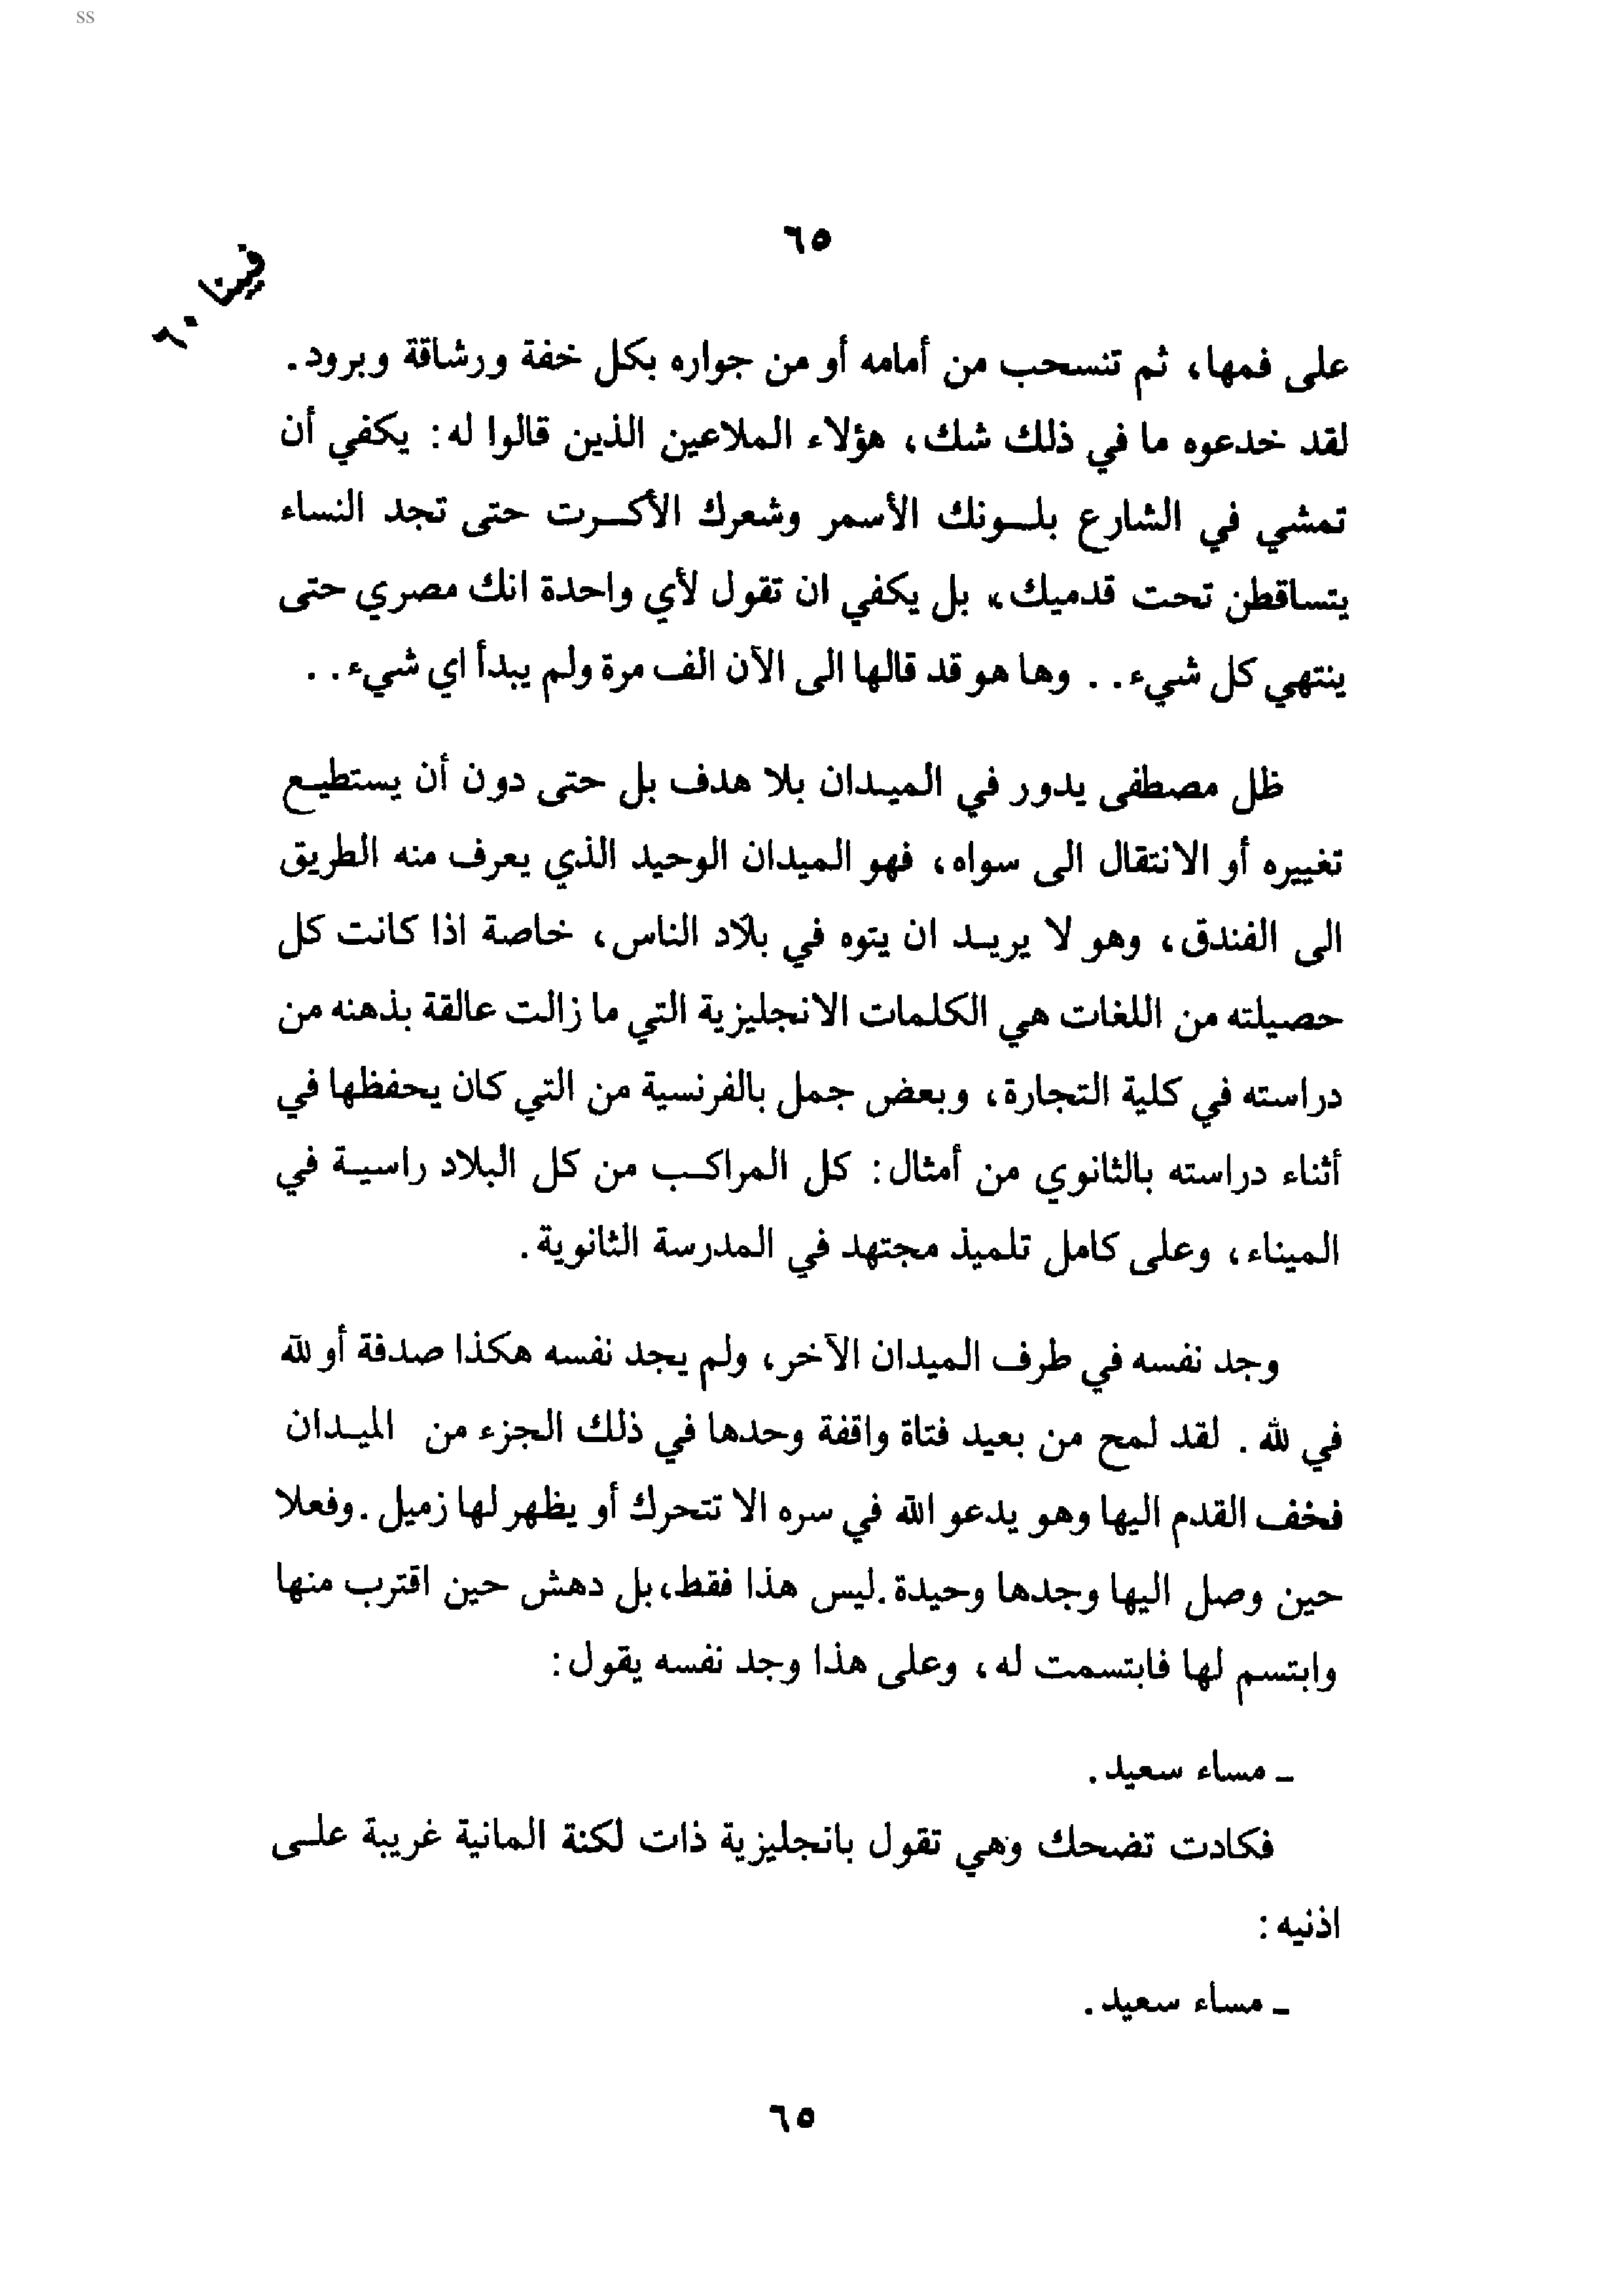 SS
٦٥
فيينا ٦٠
على فمها، ثم تنسحب من أمامه أو من جواره بكل خفة ورشاقة وبرود.
لقد خدعوه ما في ذلك شك، هؤلاء الملاعين الذين قالوا له: يكفي أن
تمشي في الشارع بلونك الأسمر وشعرك الأكرت حتى تجد النساء
يتساقطن تحت قدميك، بل يكفي ان تقول لأي واحدة انك مصري حتى
ينتهي كل شيء.. وها هو قد قالها الى الآن الف مرة ولم يبدأ اي شيء..
ظل مصطفى يدور في الميدان بلا هدف بل حتى دون أن يستطيع
تغييره أو الانتقال الى سواه، فهو الميدان الوحيد الذي يعرف منه الطريق
الى الفندق، وهو لا يريد ان يتوه في بلاد الناس، خاصة اذا كانت كل
حصيلته من اللغات هي الكلمات الانجليزية التي ما زالت عالقة بذهنه من
دراسته في كلية التجارة، وبعض جمل بالفرنسية من التي كان يحفظها في
أثناء دراسته بالثانوي من أمثال: كل المراكب من كل البلاد راسية في
الميناء، وعلى كامل تلميذ مجتهد في المدرسة الثانوية.
وجد نفسه في طرف الميدان الآخر، ولم يجد نفسه هكذا صدفة أو لله
في لله. لقد لمح من بعيد فتاة واقفة وحدها في ذلك الجزء من الميدان
فخف القدم اليها وهو يدعو الله في سره الا تتحرك أو يظهر لها زميل. وفعلا
حين وصل اليها وجدها وحيدة. ليس هذا فقط، بل دهش حين اقترب منها
وابتسم لها فابتسمت له، وعلى هذا وجد نفسه يقول:
ـ مساء سعيد.
فكادت تضحك وهي تقول بانجليزية ذات لكنة المانية غريبة على
اذنيه:
ـ مساء سعيد.
٦٥